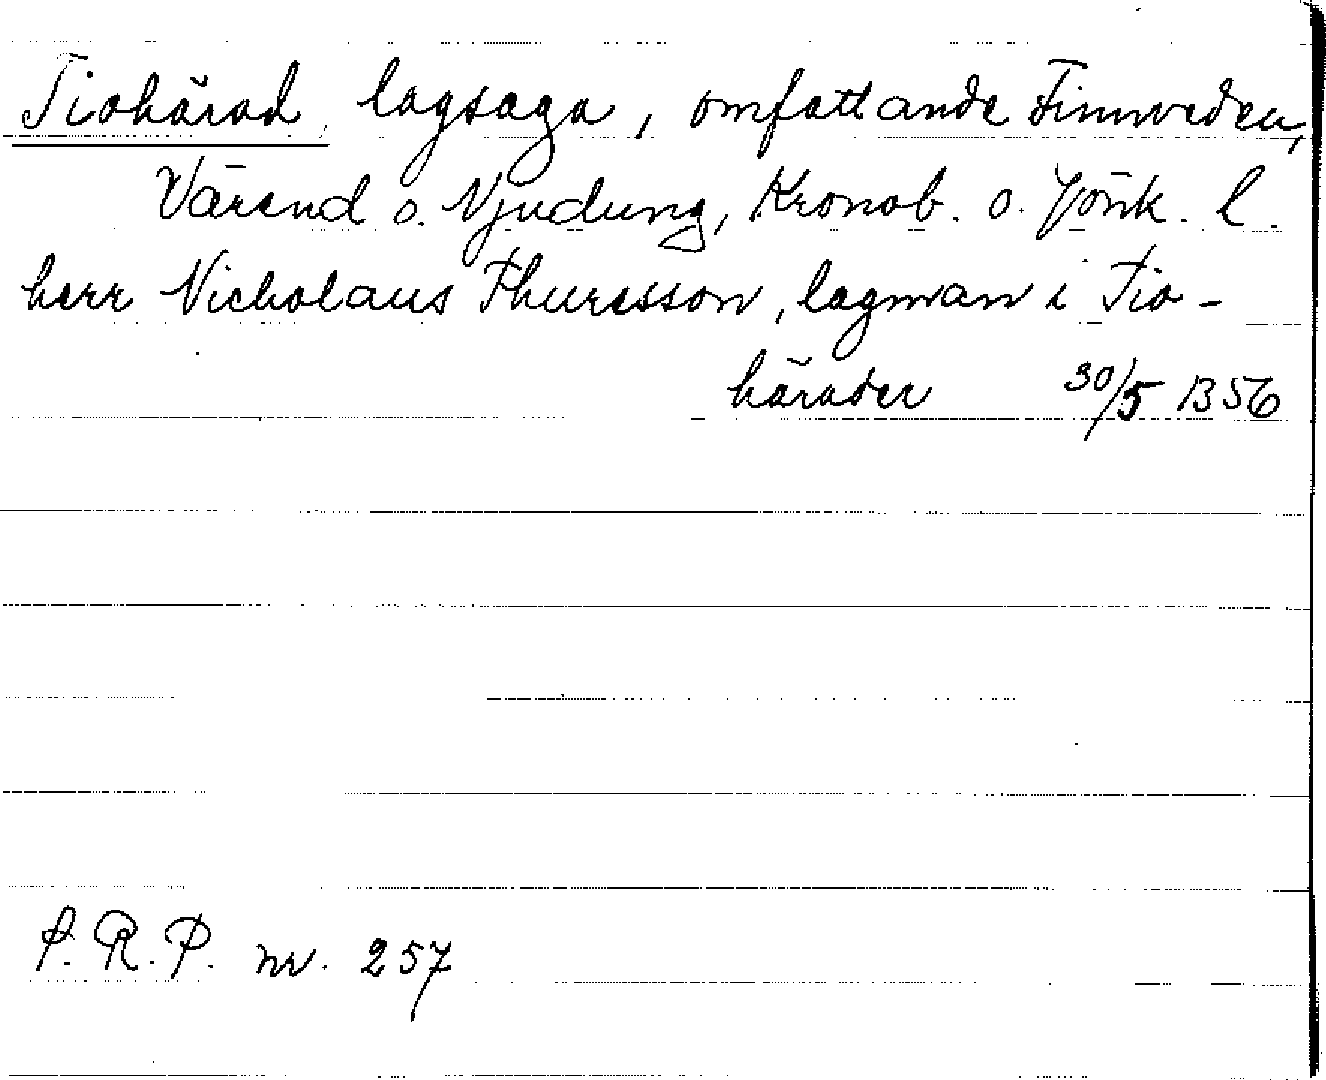 Tiohärad lagsaga, omfattande Finnveden,
Värend o. Njudung, Kronob. o. Jönk. l.
herr Nicholaus Thuresson, lagman i Tio-
härader 30/5 1356
S.R.P. nr. 257